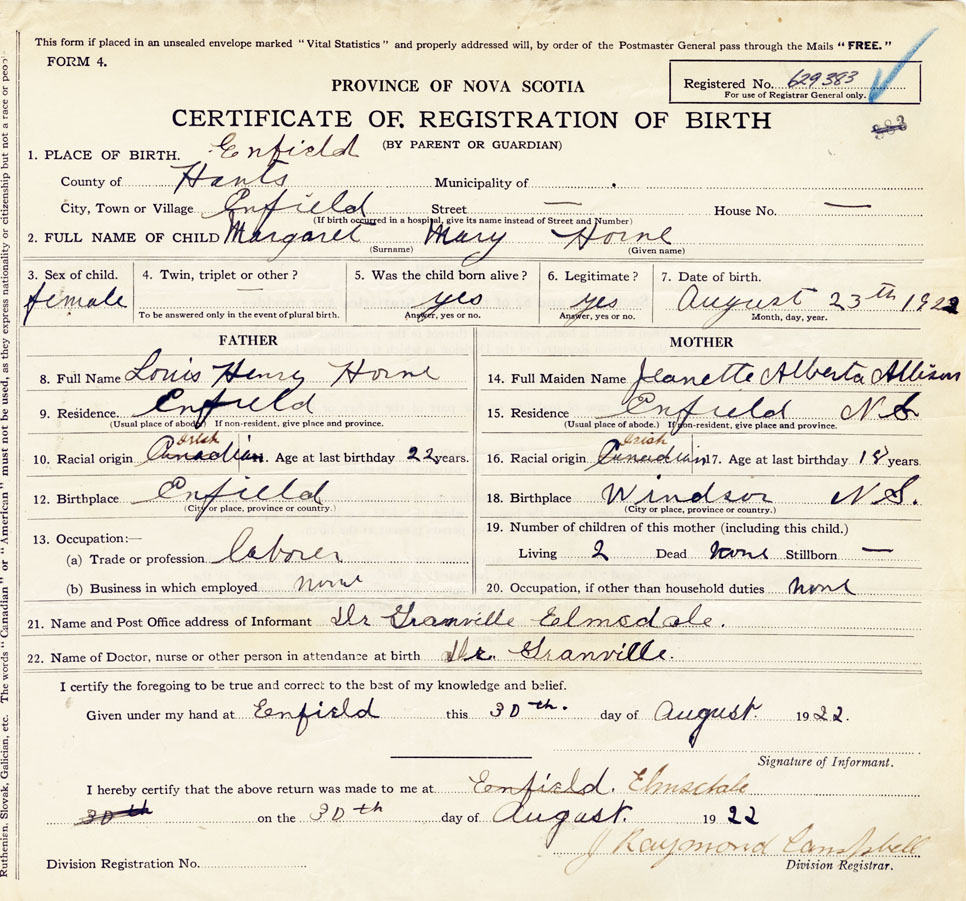 This form if placed in an unsealed envelope marked "Vital Statistics" and properly addressed will, by order of the Postmaster General pass through the Mails "FREE."
FORM 4.
PROVINCE OF NOVA SCOTIA
Registered No. 629383
For use of Registrar General only.
CERTIFICATE OF REGISTRATION OF BIRTH
383
(BY PARENT OR GUARDIAN)
1. PLACE OF BIRTH. Enfield
County of Hants Municipality of
City, Town or Village Enfield Street — House No. —
(If birth occurred in a hospital, give its name instead of Street and Number)
2. FULL NAME OF CHILD Margaret Mary Horne
(Surname) (Given name)
3. Sex of child. 4. Twin, triplet or other? 5. Was the child born alive? 6. Legitimate? 7. Date of birth.
female — yes yes August 23th 1922
To be answered only in the event of plural birth. Answer, yes or no. Answer, yes or no. Month, day, year.
FATHER
8. Full Name Louis Henry Horne
9. Residence. Enfield
(Usual place of abode) If non-resident, give place and province.
Irish
10. Racial origin Canadian. 11. Age at last birthday 22 years.
12. Birthplace Enfield
(City or place, province or country.)
13. Occupation:—
(a) Trade or profession laborer
(b) Business in which employed none
MOTHER
14. Full Maiden Name Jeanette Alberta Allison
15. Residence Enfield N S
(Usual place of abode.) If non-resident, give place and province.
Irish
16. Racial origin Canadian 17. Age at last birthday 18 years.
18. Birthplace Windsor N S.
(City or place, province or country.)
19. Number of children of this mother (including this child.)
Living 2 Dead none Stillborn —
20. Occupation, if other than household duties none
21. Name and Post Office address of Informant Dr Granville Elmsdale.
22. Name of Doctor, nurse or other person in attendance at birth Dr. Granville.
I certify the foregoing to be true and correct to the best of my knowledge and belief.
Given under my hand at Enfield this 30th. day of August. 1922.
Signature of Informant.
I hereby certify that the above return was made to me at Enfield. Elmsdale
30th on the 30th day of August. 1922
J Raymond Campbell
Division Registration No. Division Registrar.
Ruthenian, Slovak, Galician, etc. The words "Canadian" or "American" must not be used, as they express nationality or citizenship but not a race or peop